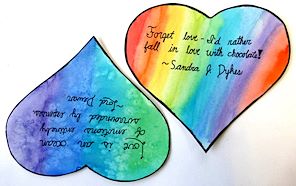 Forget love - I'd rather
fall in love with chocolate!
~Sandra J Dykes
Love is an ocean
of emotions entirely
surrounded by expenses
~Lord Dewar